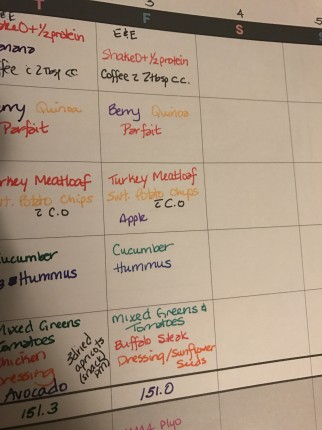 T
F
4
S
5
E&E
E&E
Shake
+ 1/2 protein
Shakeology + 1/2 protein
Coffee c̄ 2 Tbsp cc
Coffee c̄ 2 Tbsp c.c.
Berry Quinoa
Parfait
Berry Quinoa
Parfait
Turkey Meatloaf
Swt. Potato Chips
c̄ C.O
Turkey Meatloaf
Swt. Potato Chips
c̄ C.O
Apple
Cucumber
Hummus
Cucumber
Hummus
Mixed Greens
Tomatoes
Chicken
Dressing
Avocado
3 dried
apricots
(snack)
Mixed Greens &
Tomatoes
Buffalo Steak
Dressing/Sunflower
Seeds
151.3
151.0
Plyo